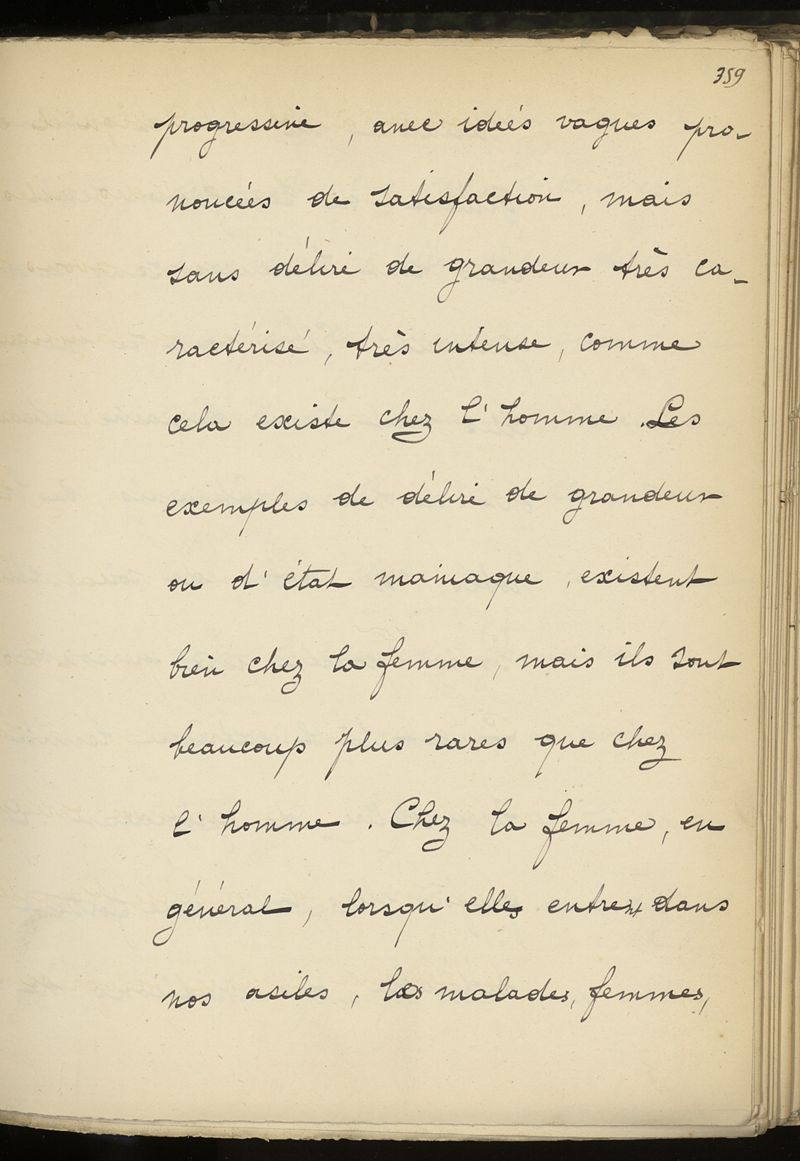 359
progressive, avec idées vagues pro-
noncées de satisfaction, mais
sans délire de grandeur très ca-
ractérisé, très intense, comme
cela existe chez l'homme. Les
exemples de délire de grandeur
ou d'état maniaque, existent
bien chez la femme, mais ils sont
beaucoup plus rares que chez
l'homme. Chez la femme, en
général, lorsqu'elles entrent dans
nos asiles, les malades, femmes,